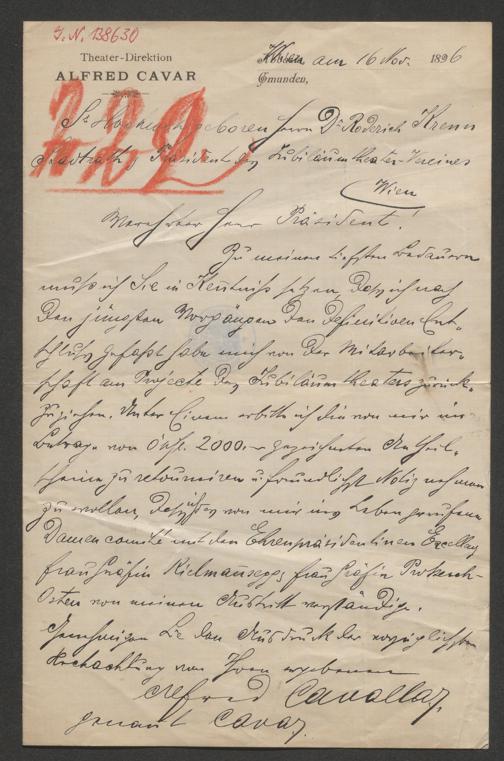 J. N. 138630
Theater-Direktion
ALFRED CAVAR
Wien am 16 Nov. 1896
Gmunden,
222.
Sr Hochwohlgeboren Herrn Dr Roderich Krenn
Stadtrath, Präsident des Jubiläumtheater-Vereines
Wien
Verehrter Herr Präsident!
Zu meinem tiefsten Bedauern
muß ich Sie in Kenntniß setzen, daß ich nach
den jüngsten Vorgängen den definitiven Ent-
schluß gefaßt habe mich von der Mitarbeiter-
schaft am Projecte des Jubiläumtheaters zurück-
zuziehen. Unter Einem erbitte ich die von mir im
Betrage von ö. W. fl. 2000.- gezeichneten Antheil-
scheine zu retourniren u. freundlichst Notiz nehmen
zu wollen, daß ich das von mir ins Leben gerufene
Damencomité mit den Ehrenpräsidentinen Excellenz
Frau Gräfin Kielmansegg, Frau Gräfin Prokesch-
Osten von meinem Austritt verständige.
Genehmigen Sie den Ausdruck der vorzüglichsten
Hochachtung von Ihrem ergebenen
Alfred Cavallar,
genannt Cavar.